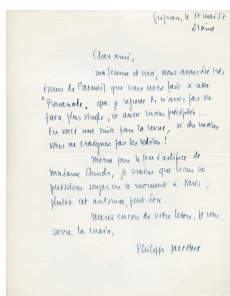 Grignan, le 17 mai 57
Drôme
Cher ami,
ma femme et moi, nous avons été très
émus de l'accueil que vous avez fait à cette
"Promenade", que je regrette de n'avoir pas su
faire plus simple, et aussi moins précipitée...
En voici une suite pour la revue, si du moins
vous ne craignez pas les redites!
Même pour le feu d'artifice de
madame, je crains que nous ne
puissions songer en ce moment à Paris;
plutôt cet automne, peut-être.
Merci encore de votre lettre. Je vous
serre la main,
Philippe Jaccottet